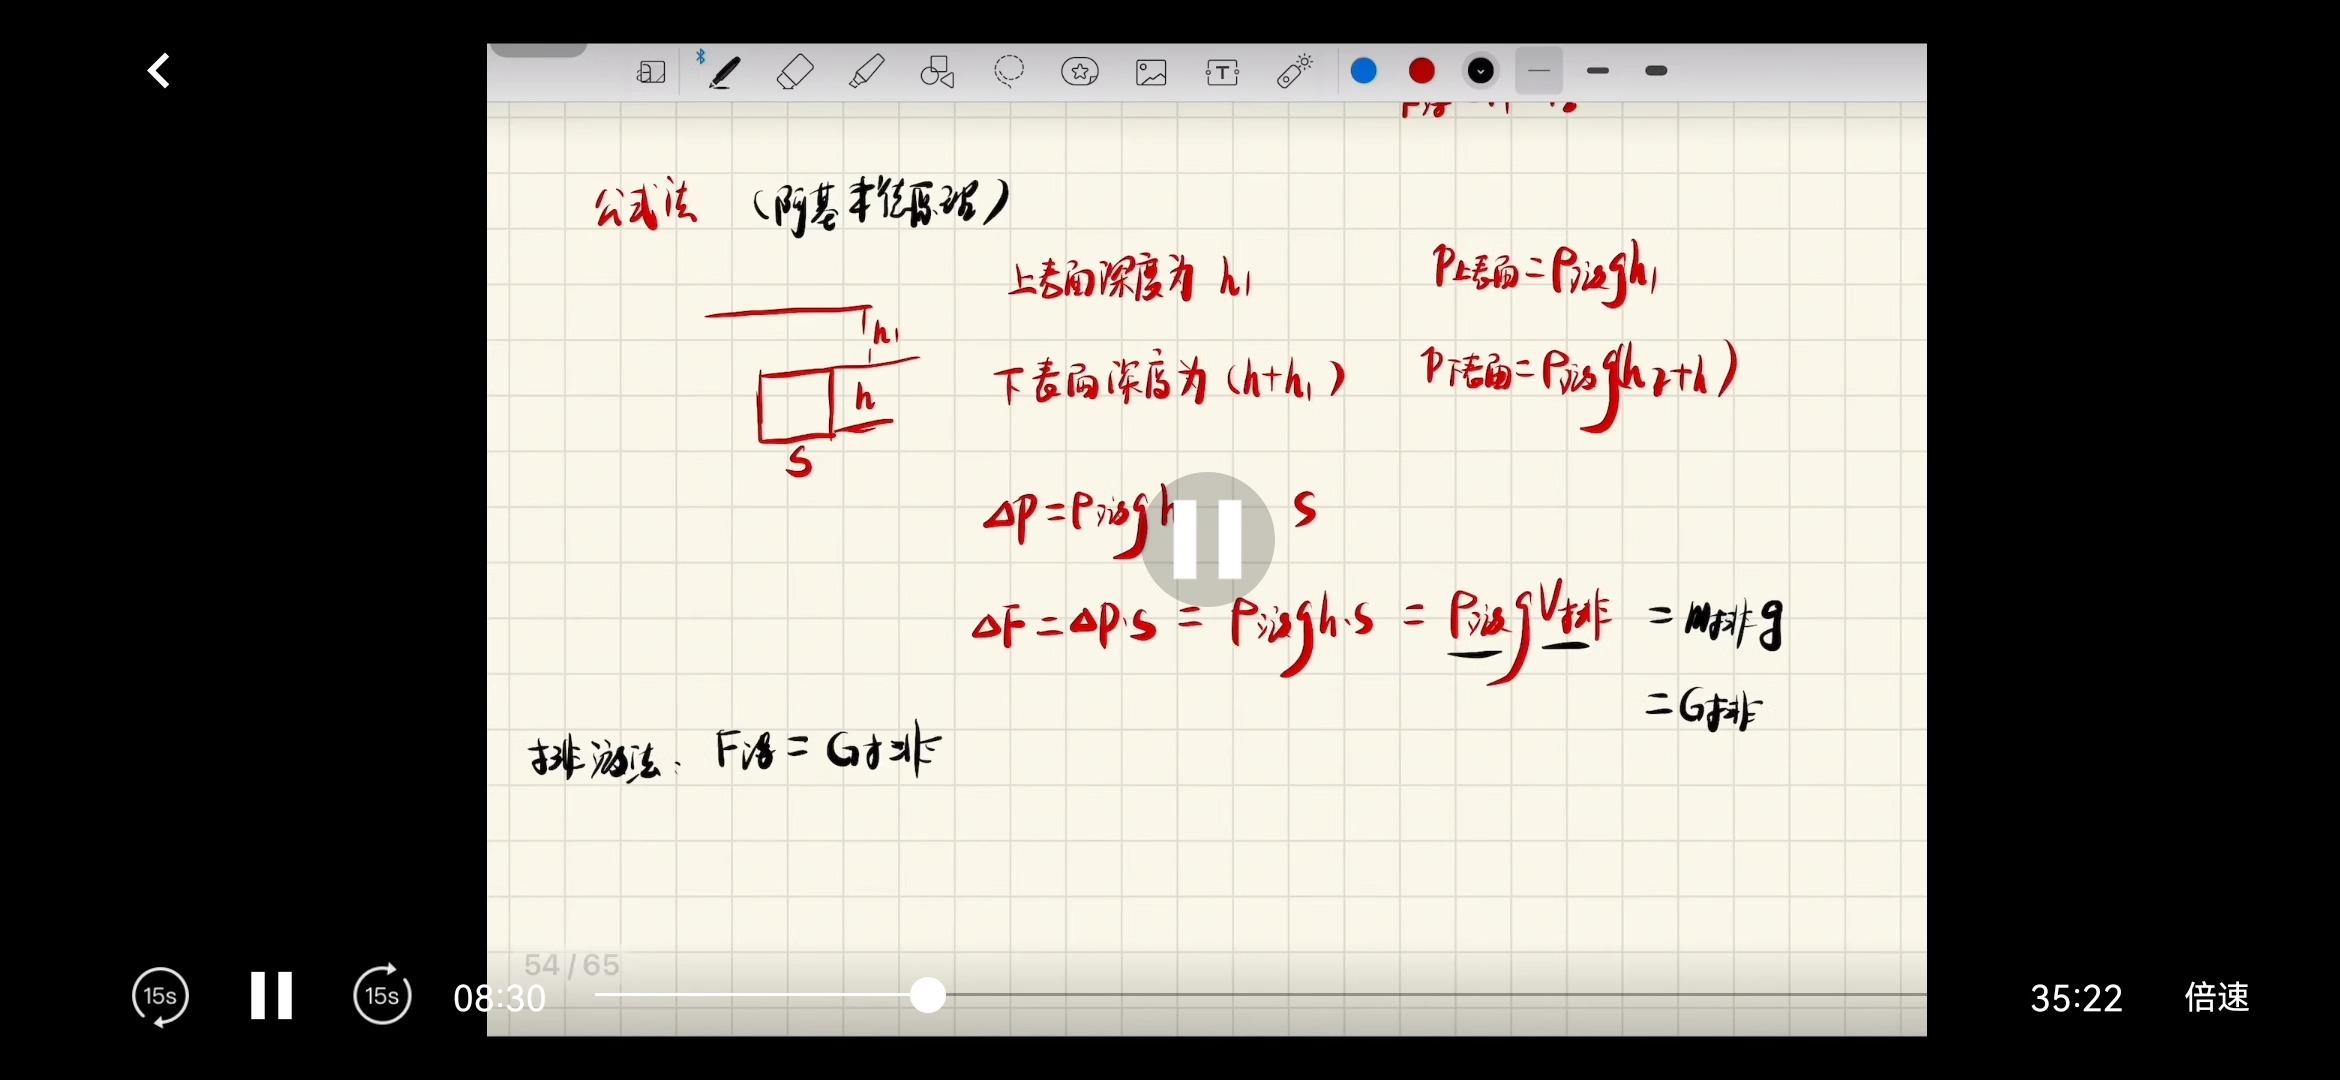 公式法 （阿基米德原理）
h₁
h
S
上表面深度为 h₁
P上表面=ρ液gh₁
下表面深度为（h+h₁）
P下表面=ρ液g(h₂+h)
ΔP=ρ液gh
S
ΔF=ΔP·S = ρ液gh·S = ρ液gV排 = m排g
=G排
排液法：F浮=G排
54/65
15s
15s
08:30
35:22
倍速